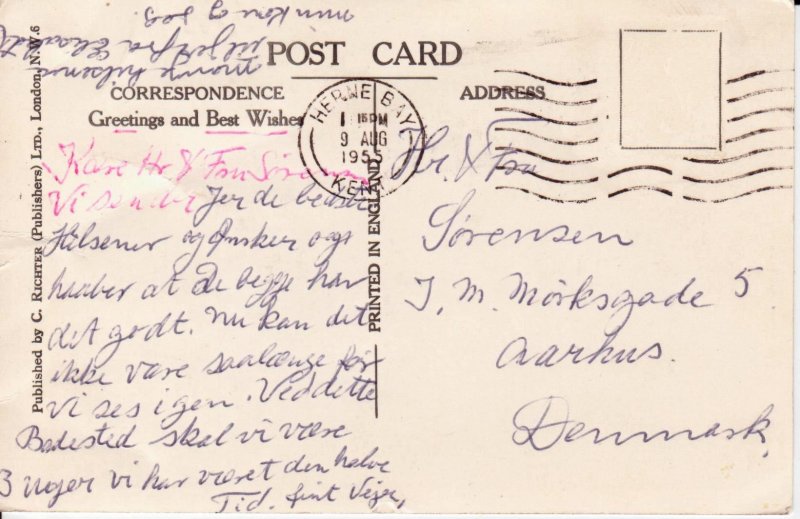 POST CARD
CORRESPONDENCE
ADDRESS
Greetings and Best Wishes
HERNE BAY
1 15 PM
9 AUG
1955
KENT
Kære Hr & Fru Sørensen
Vi sender Jer de bedste
Hilsener og Ønsker ogs
haaber at De begge har
det godt. Nu kan det
ikke være saalænge før
Vi ses igen. Ved dette
Badested skal vi være
3 Uger vi har været den halve
Tid. fint Vejer,
min Kone og
Hr. & Fru
Sørensen
J. M. Mørksgade 5.
Aarhus.
Denmark.
PRINTED IN ENGLAND
Published by C. RICHTER (Publishers) LTD., London, N.W.6